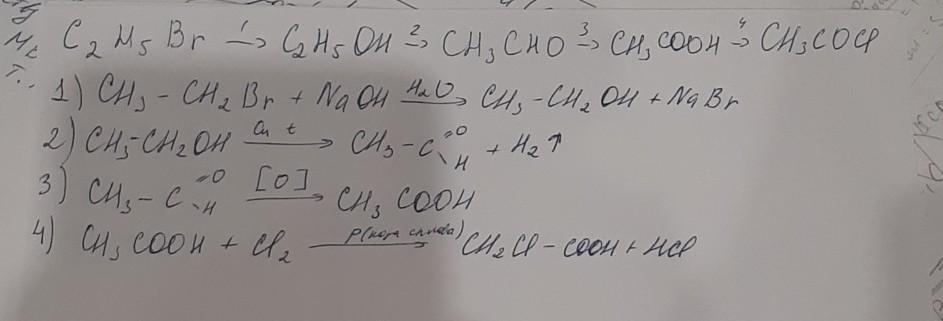 C₂H₅Br ¹→ C₂H₅OH ²→ CH₃CHO ³→ CH₃COOH ⁴→ CH₃COCl
1) CH₃-CH₂Br + NaOH H₂O→ CH₃-CH₂OH + NaBr
2) CH₃-CH₂OH Cu t→ CH₃-C=O-H + H₂↑
3) CH₃-C=O-H [O]→ CH₃COOH
4) CH₃COOH + Cl₂ P→ CH₂Cl-COOH + HCl